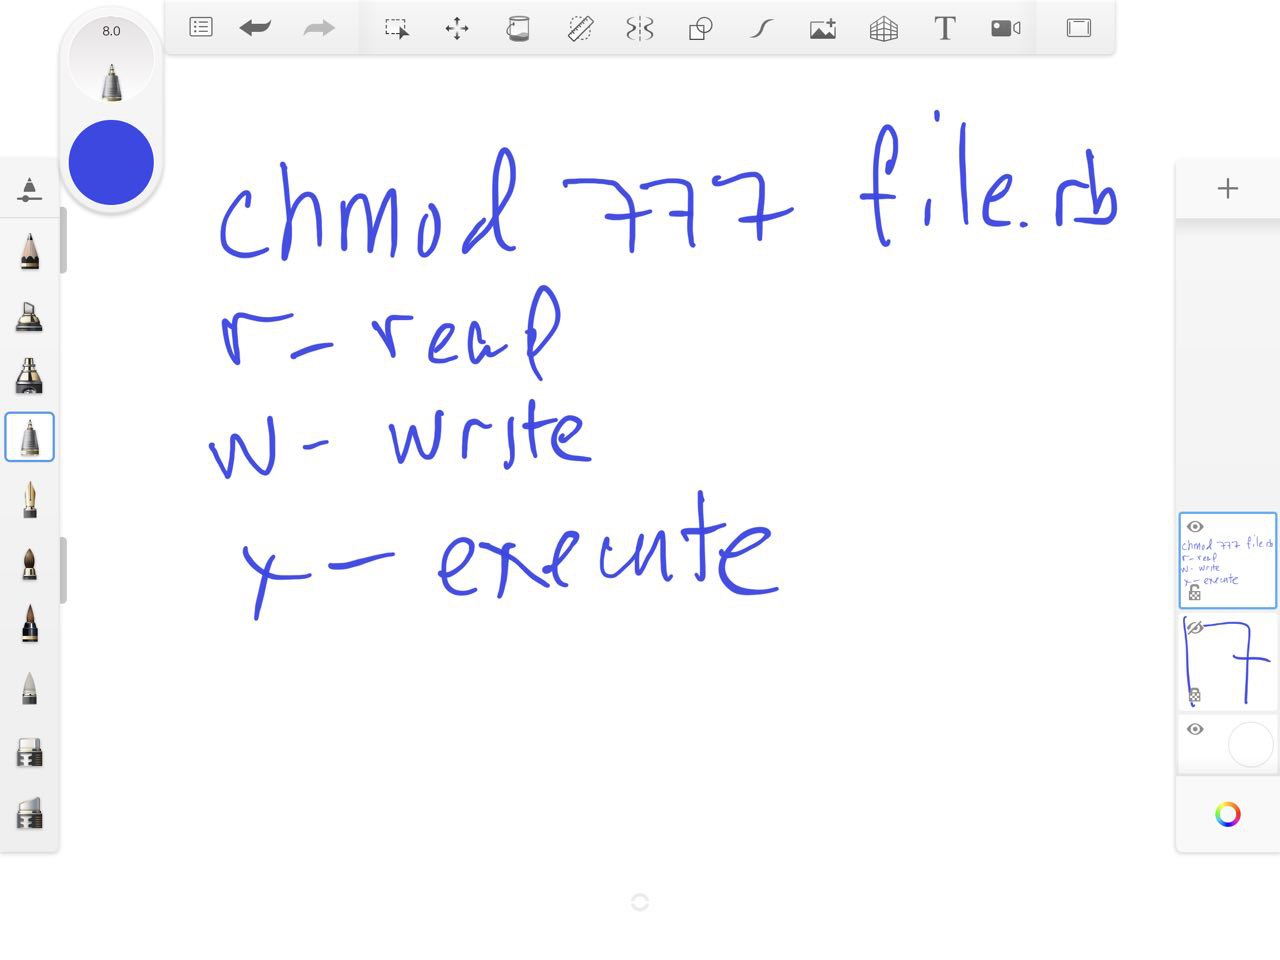 8.0
T
chmod 777 file.rb
r - read
w - write
x - execute
chmod 777 file.rb
r - read
w - write
x - execute
7